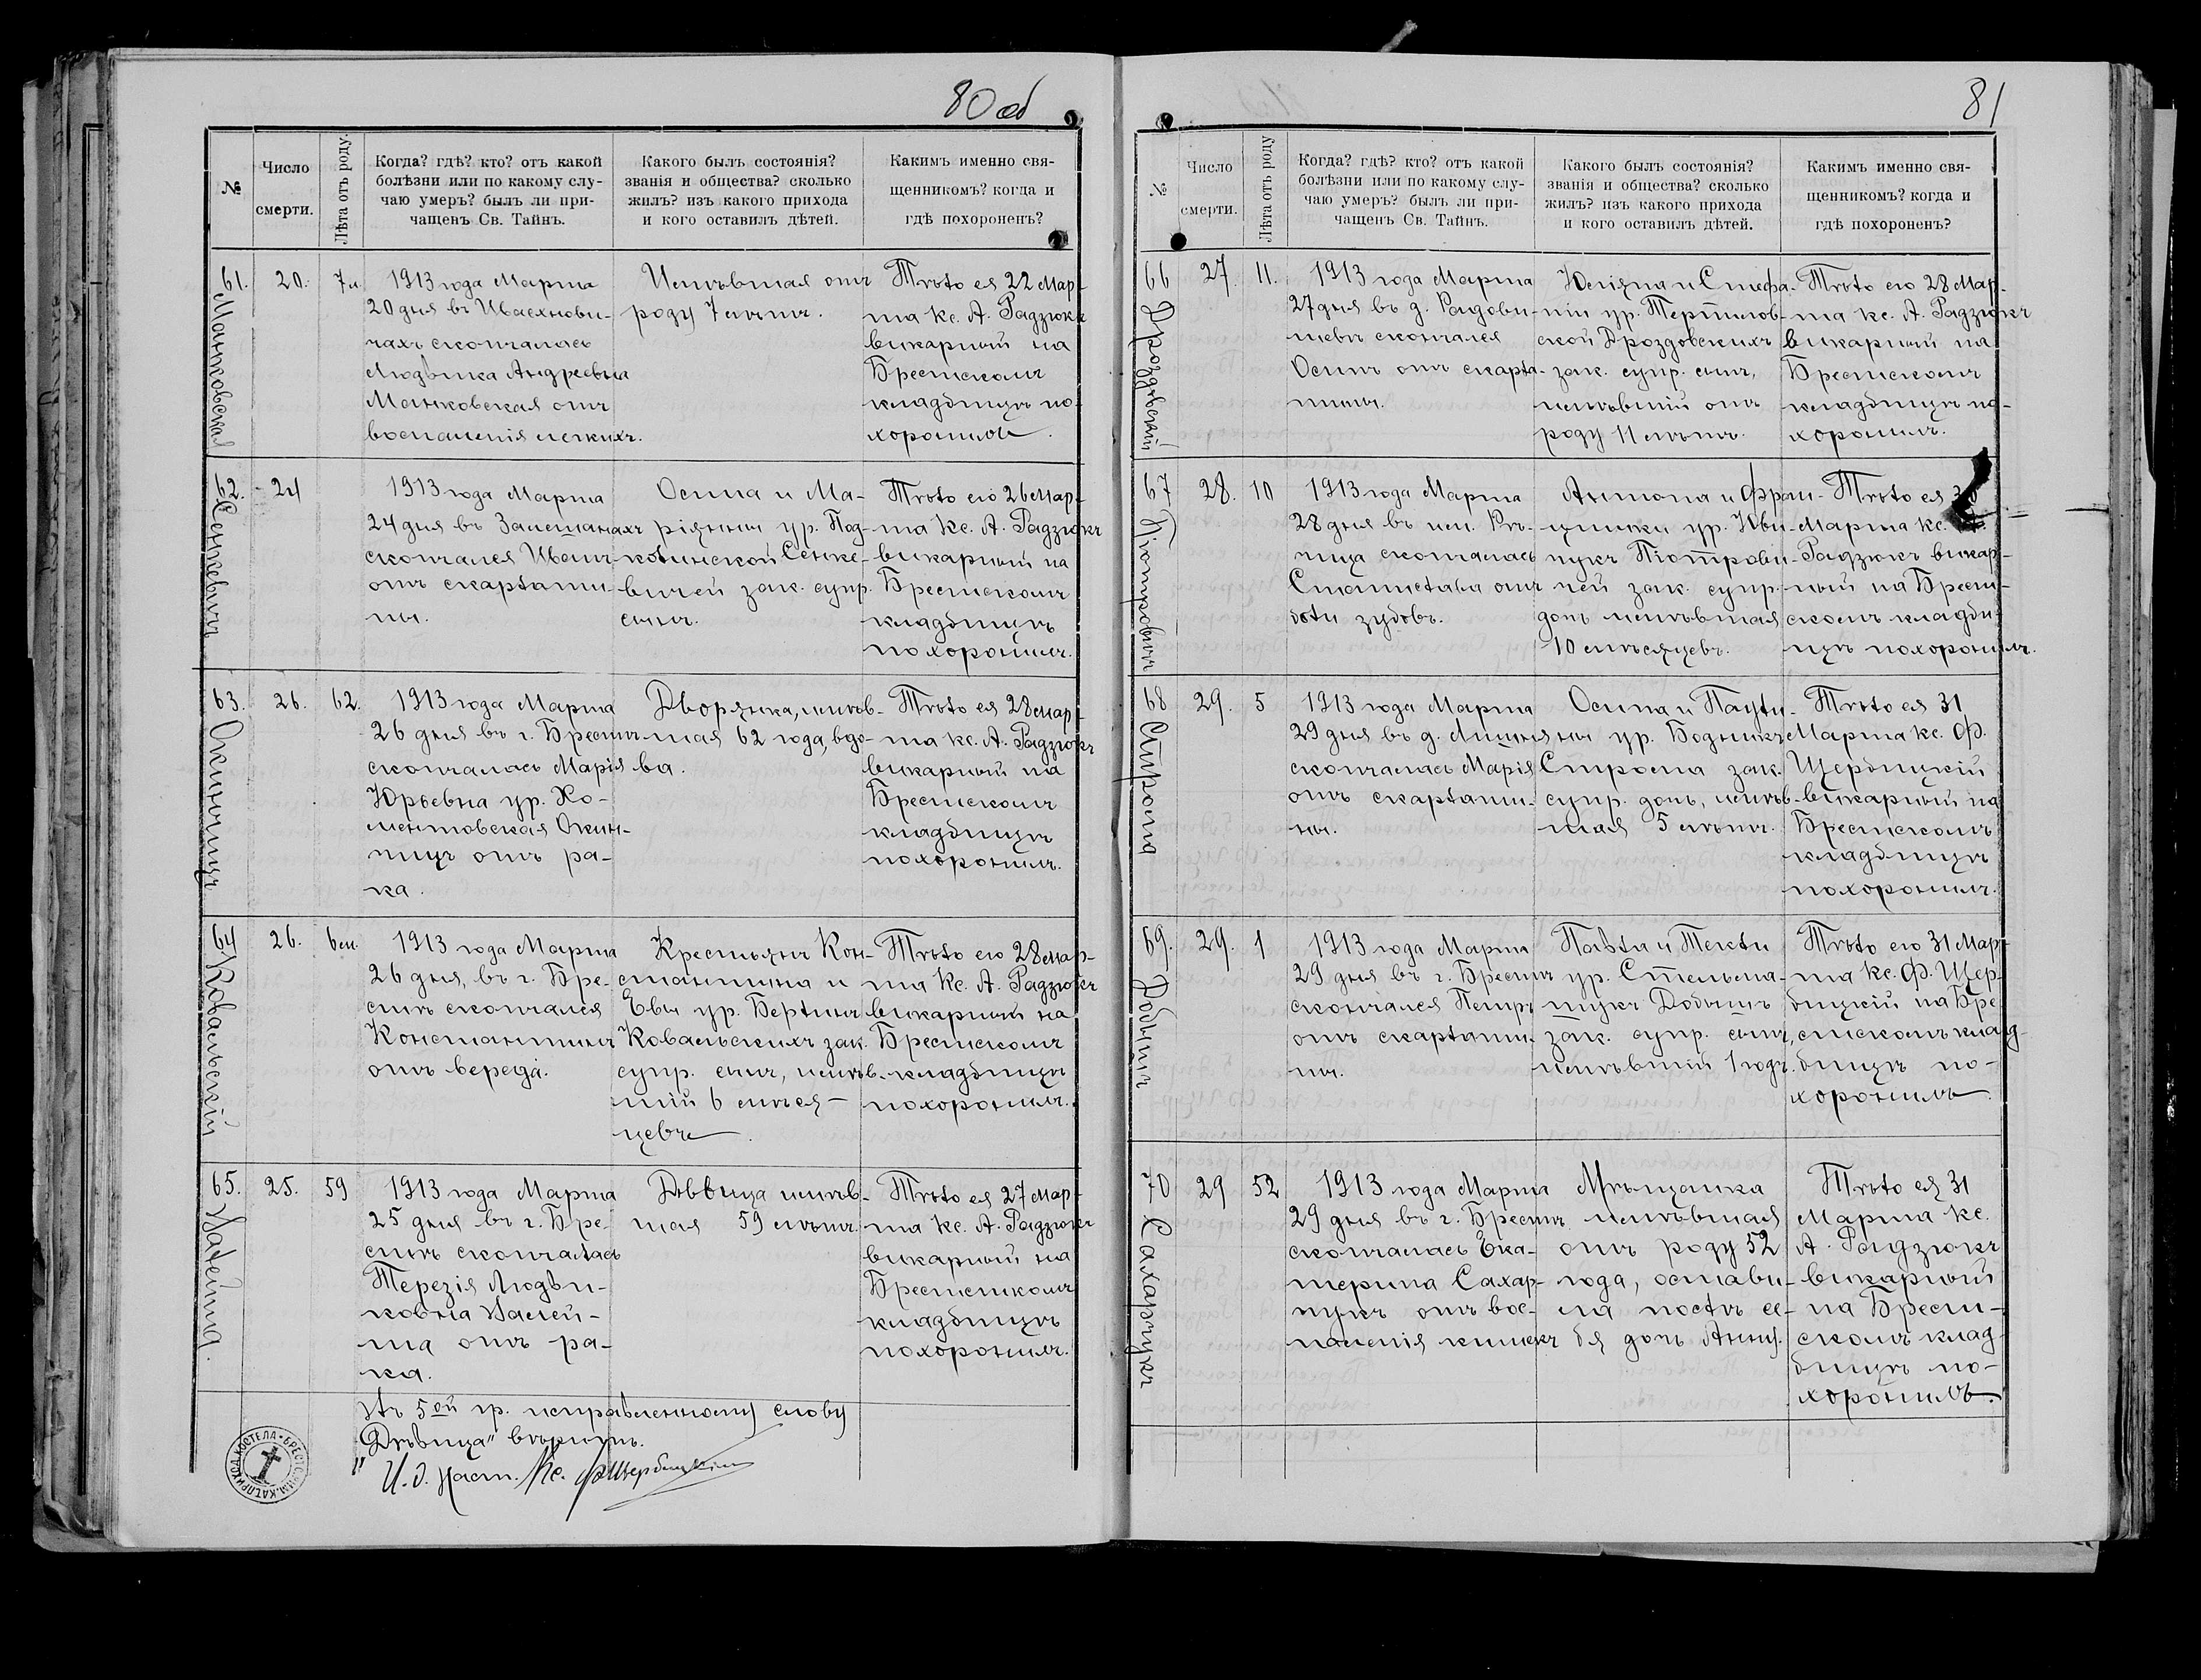 80 об
№
Число
смерти.
Лѣта отъ роду.
Когда? гдѣ? кто? отъ какой
болѣзни или по какому слу-
чаю умеръ? былъ ли при-
чащенъ Св. Тайнъ.
Какого былъ состоянія?
званія и общества? сколько
жилъ? изъ какого прихода
и кого оставилъ дѣтей.
Какимъ именно свя-
щенникомъ? когда и
гдѣ похороненъ?
61.
Маньковская
20.
7
1913 года Марта
20 дня въ
скончалась
Людвика Андреевна
Маньковская отъ
воспаленія легкихъ.
Имѣвшая отъ
роду 7 лѣтъ.
Тѣло ея 22 Мар-
та кс. А. Радзюкъ
викарный на
Брестскомъ
кладбищѣ по-
хоронилъ.
62.
Сенкевичъ
24
1913 года Марта
24 дня въ
скончался Иванъ
отъ скарлати-
ны.
Осипа и Ма-
ріянны ур. Под-
Сенке-
вичей зак. супр.
сынъ.
Тѣло его 26 Мар-
та кс. А. Радзюкъ
викарный на
Брестскомъ
кладбищѣ
похоронилъ.
63.
Окинчицъ
26.
62.
1913 года Марта
26 дня въ г. Брестѣ
скончалась Марія
Юрьевна ур. Хо-
ментовская Окин-
чицъ отъ ра-
ка.
Дворянка, имѣв-
шая 62 года, вдо-
ва.
Тѣло ея 28 мар-
та кс. А. Радзюкъ
викарный на
Брестскомъ
кладбищѣ
похоронилъ.
64
Ковальскій
26.
6 м.
1913 года Марта
26 дня, въ г. Бре-
стѣ скончался
Константинъ
отъ вереда.
Крестьянъ Кон-
стантина и
Евы ур. Бертинъ
Ковальскихъ зак.
супр. сынъ, имѣв-
шій 6 мѣся-
цевъ.
Тѣло его 28 мар-
та кс. А. Радзюкъ
викарный на
Брестскомъ
кладбищѣ
похоронилъ.
65.
25.
59
1913 года Марта
25 дня въ г. Бре-
стѣ скончалась
Терезія Людви-
ковна
отъ ра-
ка.
Дѣвица имѣв-
шая 59 лѣтъ.
Тѣло ея 27 мар-
та кс. А. Радзюкъ
викарный на
Брестскомъ
кладбищѣ
похоронилъ.
Въ 5ой гр. исправленному слову
"Дѣвица" вѣрить.
И. д. наст. Кс. Ф. Щербицкій
81
№
Число
смерти.
Лѣта отъ роду
Когда? гдѣ? кто? отъ какой
болѣзни или по какому слу-
чаю умеръ? былъ ли при-
чащенъ Св. Тайнъ.
Какого былъ состоянія?
званія и общества? сколько
жилъ? изъ какого прихода
и кого оставилъ дѣтей.
Какимъ именно свя-
щенникомъ? когда и
гдѣ похороненъ?
66
Дроздовскій
27.
11.
1913 года Марта
27 дня въ д.
скончался
Осипъ отъ скарла-
тины.
Юліяна и Стефа-
ніи ур.
Дроздовскихъ
зак. супр. сынъ,
имѣвшій отъ
роду 11 лѣтъ.
Тѣло его 28 Мар-
та кс. А. Радзюкъ
викарный на
Брестскомъ
кладбищѣ по-
хоронилъ.
67
Піотровичъ
28.
10
1913 года Марта
28 дня въ им. Рѣ-
чица скончалась
Станислава отъ
боли зубовъ.
Антона и Фран-
цишки ур. Иви-
цукъ Піотрови-
чей зак. супр.
дочь имѣвшая
10 мѣсяцевъ.
Тѣло ея
Марта кс. А.
Радзюкъ викар-
ный на Брест-
скомъ кладби-
щѣ похоронилъ.
68
Строепа
29.
5
1913 года Марта
29 дня въ д.
скончалась Марія
отъ скарлати-
ны.
Осипа и Паули-
ны ур. Бодникъ
Строепа зак.
супр. дочь, имѣв-
шая 5 лѣтъ.
Тѣло ея 31
Марта кс. Ф.
Щербицкій
викарный на
Брестскомъ
кладбищѣ
похоронилъ.
69.
Добышъ
29.
1
1913 года Марта
29 дня въ г. Брестѣ
скончался Петръ
отъ скарлати-
ны.
Павла и Теклы
ур. Стельма-
щукъ Добышъ
зак. супр. сынъ,
имѣвшій 1 годъ.
Тѣло его 31 Мар-
та кс. Ф. Щер-
бицкій на Бре-
стскомъ клад-
бищѣ по-
хоронилъ.
70
Сахарчукъ
29
52
1913 года Марта
29 дня въ г. Брестѣ
скончалась Ека-
терина Сахар-
чукъ отъ вос-
паленія кишекъ
Мѣщанка
имѣвшая
отъ роду 52
года, остави-
ла послѣ се-
бя дочь Анну.
Тѣло ея 31
Марта кс.
А. Радзюкъ
викарный
на Брест-
скомъ клад-
бищѣ по-
хоронилъ.